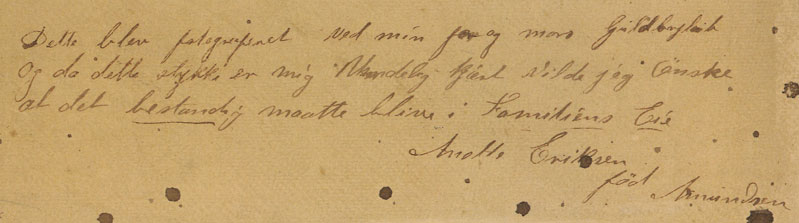 Dette blev fotografieret ved min far og mors Guldbryllub
og da dette stykke er mig kjært vilde jeg Önske
at det bestandig maatte blive i Familiens Eie
Anette Eriksen
född Amundsen